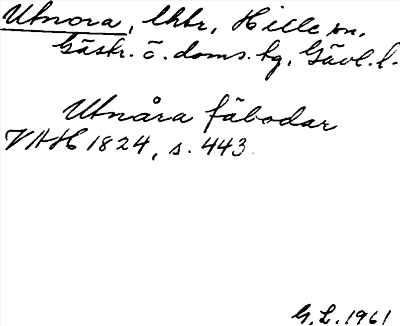 Utnora, lhtr, Hille sn,
Gästr. ö. doms. tg, Gävl. l.
Utnåra fäbodar
VAH 1824, s. 443.
G. L. 1961